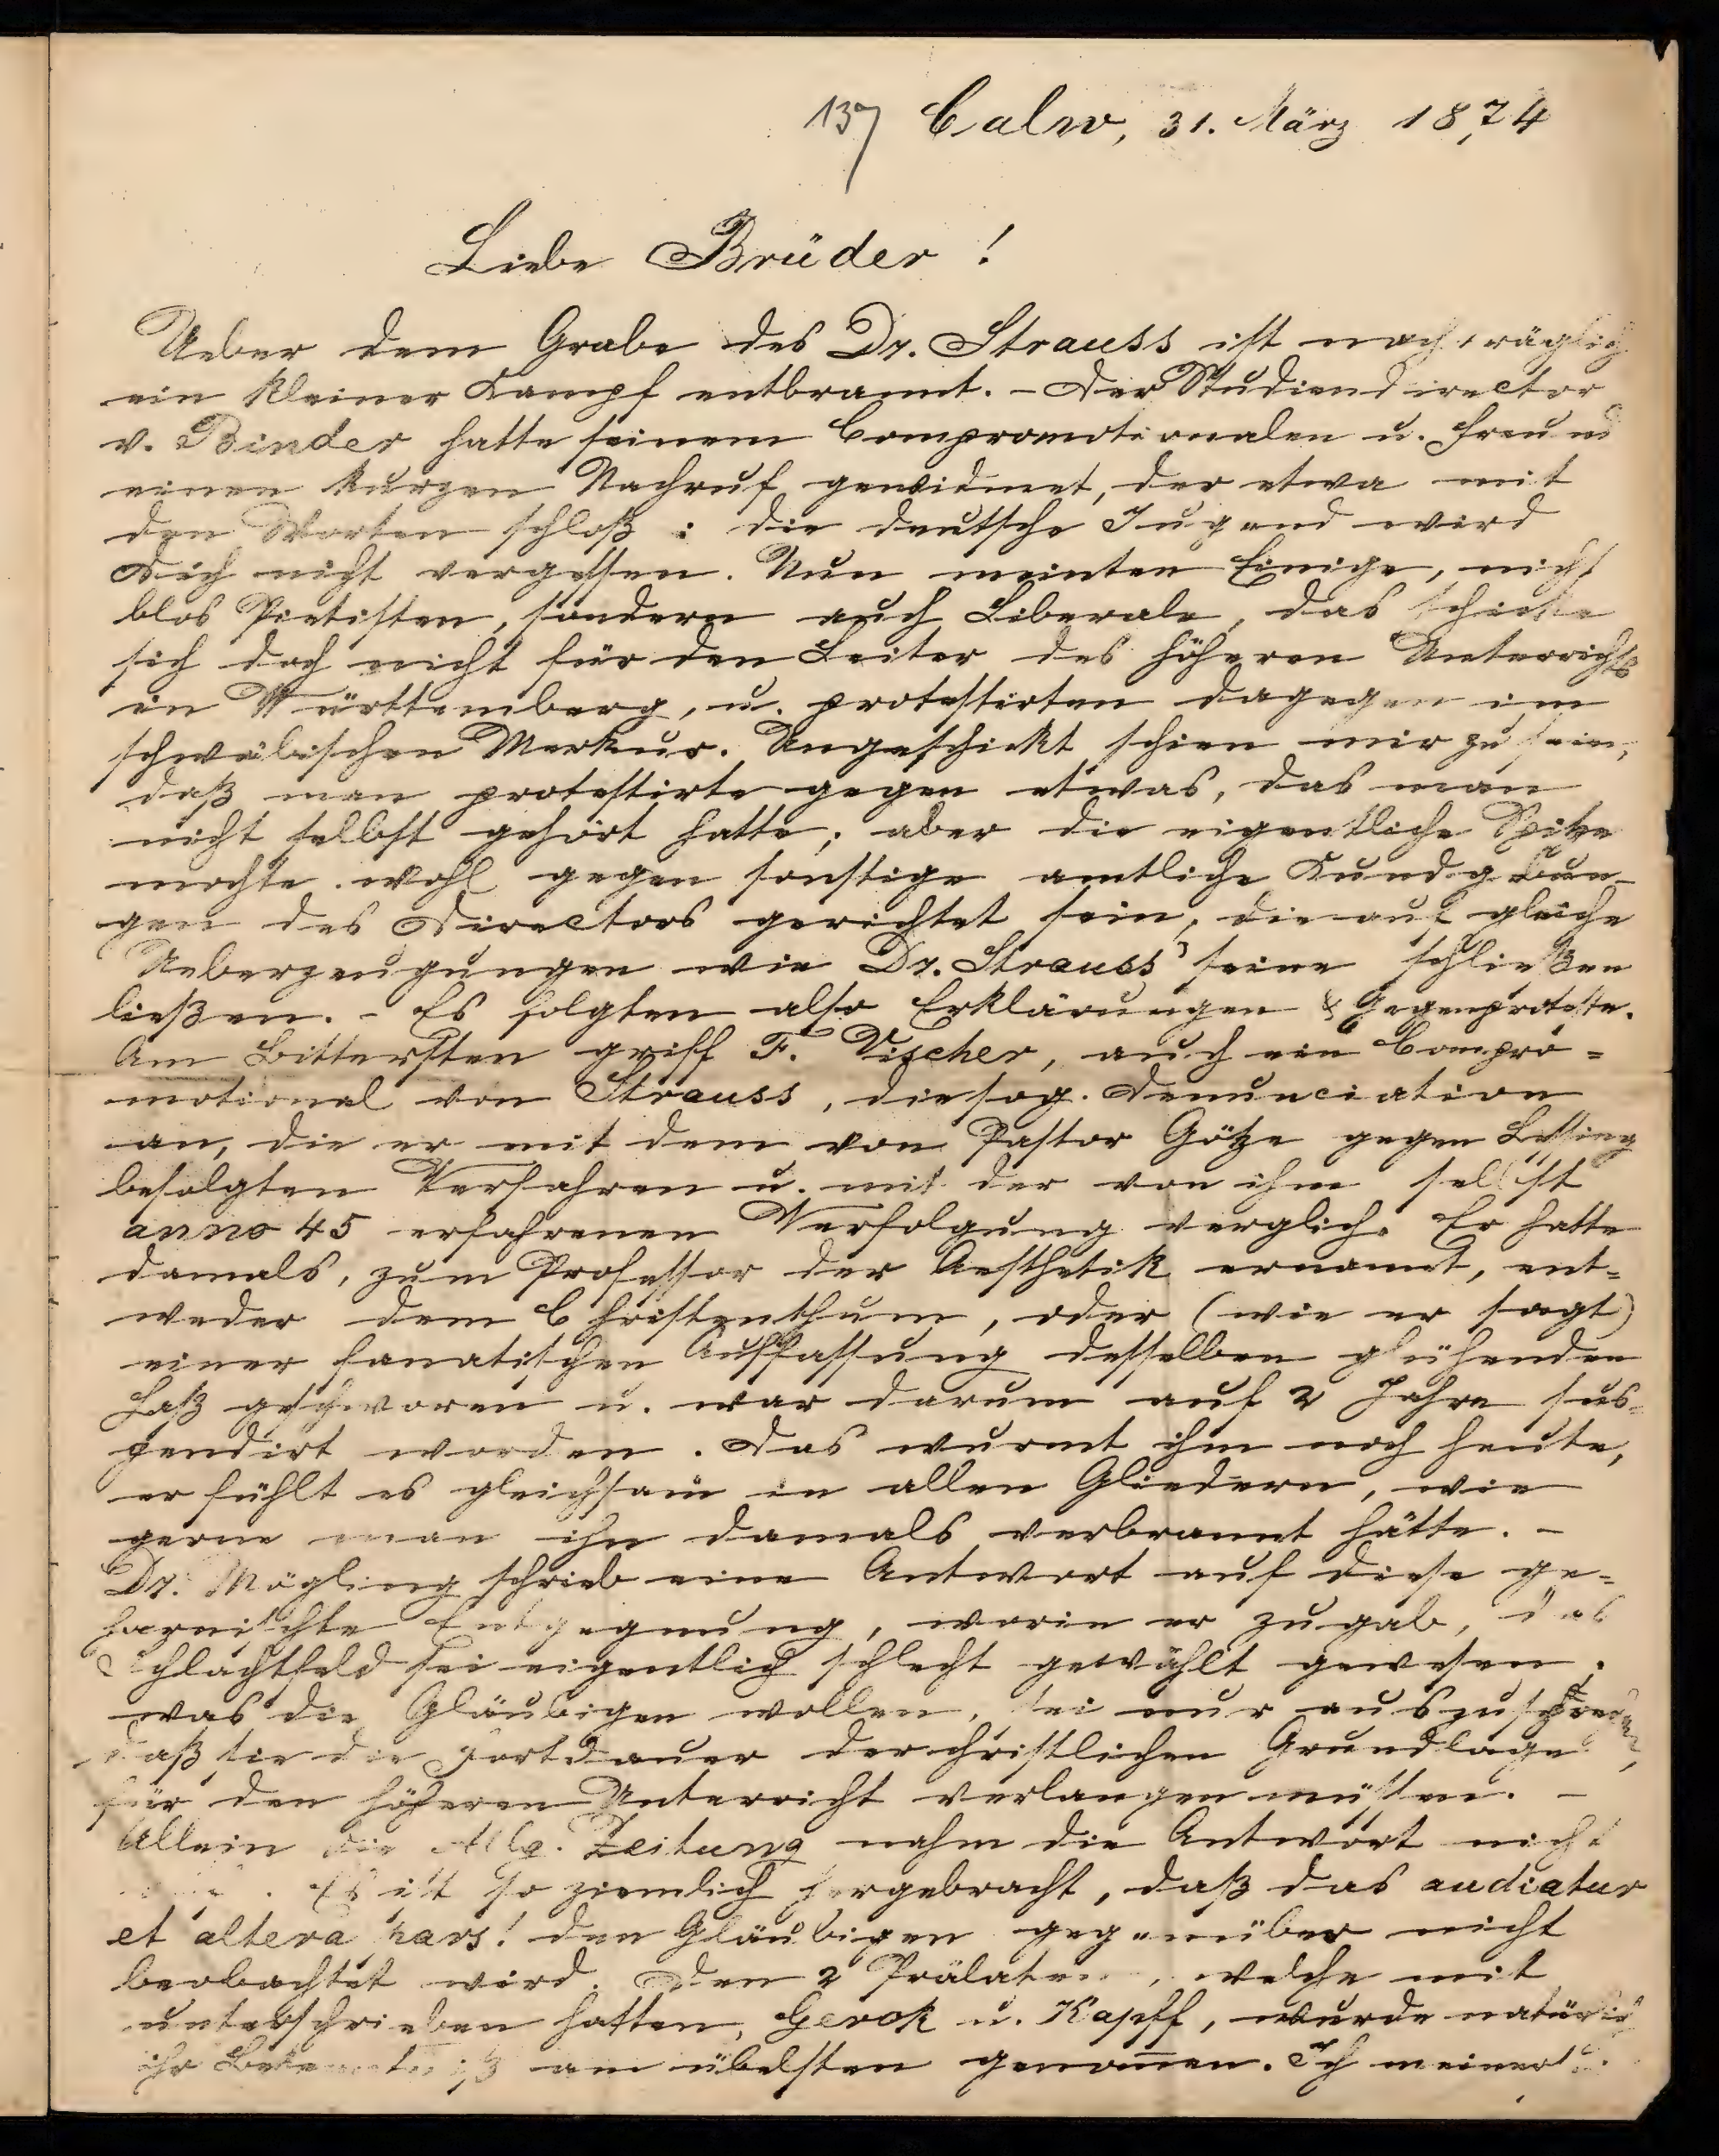 137 Calw, 31. März 1874
Liebe Brüder!
Ueber dem Grabe des Dr. Strauss ist nachträglich
ein kleiner Kampf entbrannt. - Der Studiendirector
v. Binder hatte seinem Compromotionalen u. Freund
einen kurzen Nachruf gewidmet, der etwa mit
den Worten schloß: die deutsche Jugend wird
Dich nicht vergessen. Nun meinten Einige, nicht
blos Pietisten, sondern auch Liberale, das schicke
sich doch nicht für den Leiter des höheren Unterrichts
in Württemberg, u. protestirten dagegen im
schwäbischen Merkur. Ungeschickt schien mir zu sein,
daß man protestirte gegen etwas, das man
nicht selbst gehört hatte; aber die eigentliche Spitze
mochte wohl gegen sonstige amtliche Kundgebun-
gen des Directors gerichtet sein, die auf gleiche
Ueberzeugungen wie Dr. Strauss' seine schließen
ließen. - Es folgten also Erklärungen & Gegenproteste.
Am Bittersten griff F. Vischer, auch ein Compro=
motional von Strauss, die sog. Denunciation
an, die er mit dem von Pastor Götze gegen Lessing
befolgten Verfahren u. mit der von ihm selbst
anno 45 erfahrenen Verfolgung verglich. Er hatte
damals, zum Professor der Aesthetik ernannt, ent=
weder dem Christenthum, oder (wie er sagt)
einer fanatischen Auffassung desselben glühenden
Haß geschworen u. war darum auf 2 Jahre sus-
pendirt worden. Das wurmt ihn noch heute,
er fühlt es gleichsam in allen Gliedern, wie
gerne man ihn damals verbrannt hätte. -
Dr. Mögling schrieb eine Antwort auf diese ge=
harnischte Entgegnung, worin er zugab, das
Schlachtfeld sei eigentlich schlecht gewählt gewesen;
was die Gläubigen wollen, sei nur auszusprechen,
daß sie die Fortdauer der christlichen Grundlage
für den höheren Unterricht verlangen müssen. -
Allein die Allg. Zeitung nahm die Antwort nicht
Es ist so ziemlich hergebracht, daß das audiatur
et altera pars! den Gläubigen gegenüber nicht
beobachtet wird. Den 2 Prälaten, welche mit
unterschrieben hatten, Gerok u. Kapff, wurde natürlich
ihr Bekenntniß am übelsten genom̄en. Ich meiner